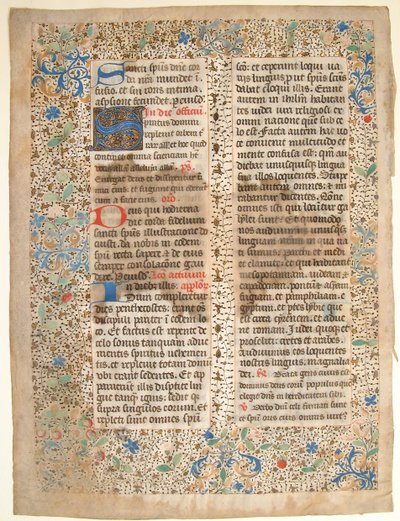 Sancti spūs dnē cor
da nr̄a mundet ī
fusio. et sui roris intima
aspersione fecundet. Per eiusd̄
In die officiū
Spiritus domini
replevit orbem t
rar̄ all' et hoc quod
continet omnia scientiam h̄t
vocis alla alla alla. ps
Exurgat deus et dissipentur i
mici eius: et fugiant qui oderūt
eum a facie eius. oro
Deus qui hodierna
die corda fidelium
sancti spūs illustracione do
cuisti. da nobis in eodem
spū recta sapere et de eius
semper consolacione gau
dere. Per eiusd. Lcō actuum
In dieb illis: aplor
Dum complerentur
dies penthecostes: erant oēs
discipuli pariter ī eodem lo
co. Et factus est repente de
celo sonus tanquam adue
nientis spiritus uehemen
tis. et repleuit totam domū
ubi erant sedentes. Et ap
paruerūt illis dispertite lin
gue tanq̄ ignis: sedit q̄
supra singulos eorum. et
repleti sunt omnes spū
scō: et ceperunt loqui ua
riis linguis put spūs scūs
dabat eloqui illis. Erant
autem in ihrlm̄ habitan
tes iudei uiri religiosi ex
omni natione que sub ce
lo est. Facta autem hac uo
ce conuenit multitudo et
mente confusa est: qm̄ au
diebat unusquisq̄ lingua
sua illos loquentes. Stupe
bant autem omnes: et mi
rabantur dicentes. Nōne
omnes isti qui locūtur ga
lylei sunt: Et quomodo
nos audiuimus unusquisq̄
linguam nostram in qua
nati sumus: parthi et medi
et elamite: et qui habitant
mesopotamiam. iudeam et
capadociam. pontū et asiam
frigiam. et pamphiliam. e
giptum. et ptes lybie que
est circa cyrenem. et adue
ne romani. Iudei quoq̄ et
proseliti: cretes et arabes.
audiuimus eos loquentes
nostris linguis. magnalia
dei. Beata gens cuius est
dominus deus eorū populus que
elegit dn̄s in hereditatem sibi.
V Verbo dn̄i celi firmati sunt
et spū oris eius omnis uirt'